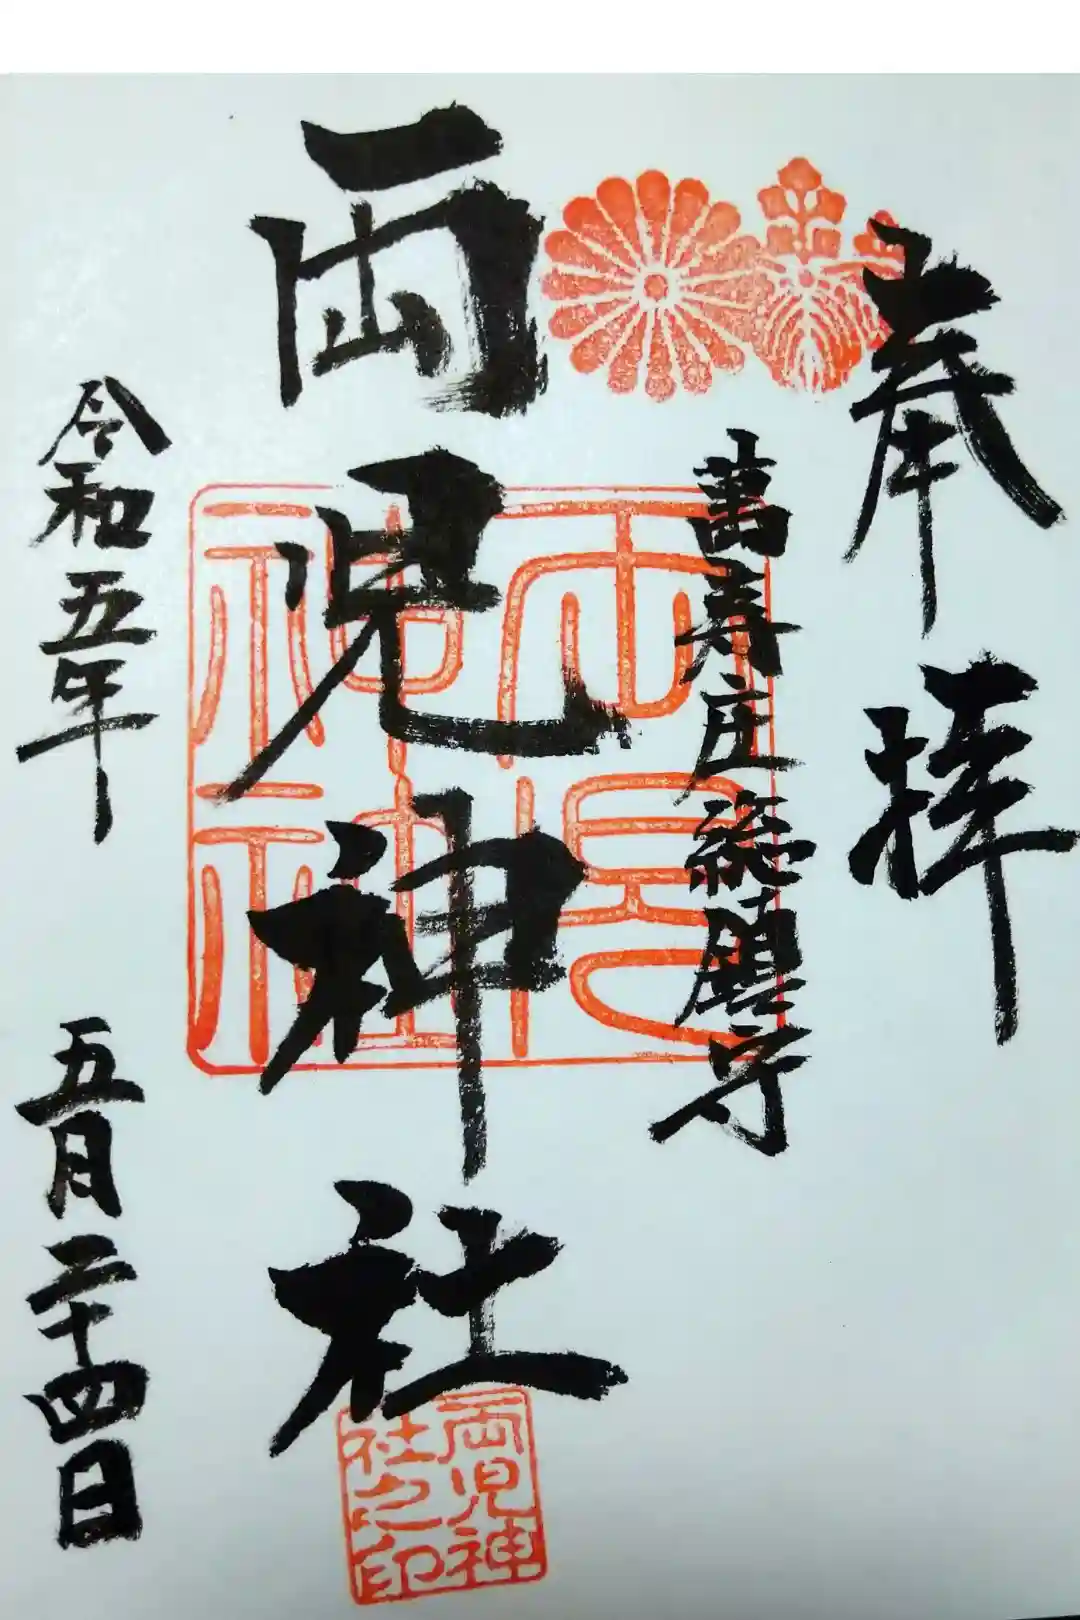 奉拝
萬寿庄総鎮守
両児神社
令和五年 五月二十四日
両児神社
両児神
社之印